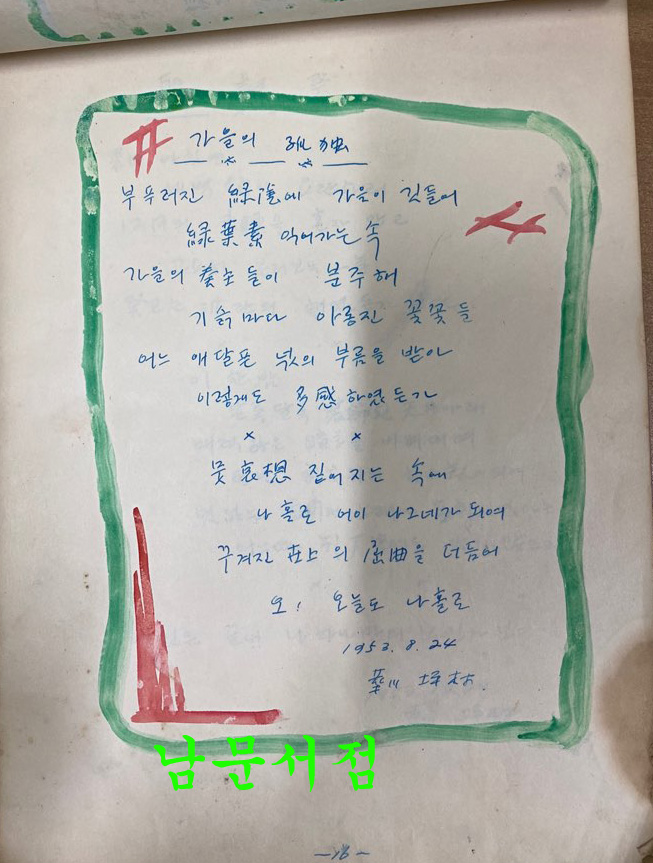 가을의 孤独
부푸러진 綠陰에 가을이 깃들어
綠葉素 익어가는 속
가을의 養主들이 분주해
기슭마다 아롱진 꽃꽃들
어느 애달픈 넋의 부름을 받아
이렇게도 多感하였든가
× ×
哀想 짙어지는 속에
나홀로 어이 나그네가 되여
꾸겨진 世上의 屈曲을 더듬어
오! 오늘도 나홀로
1953. 8. 24
남문서점